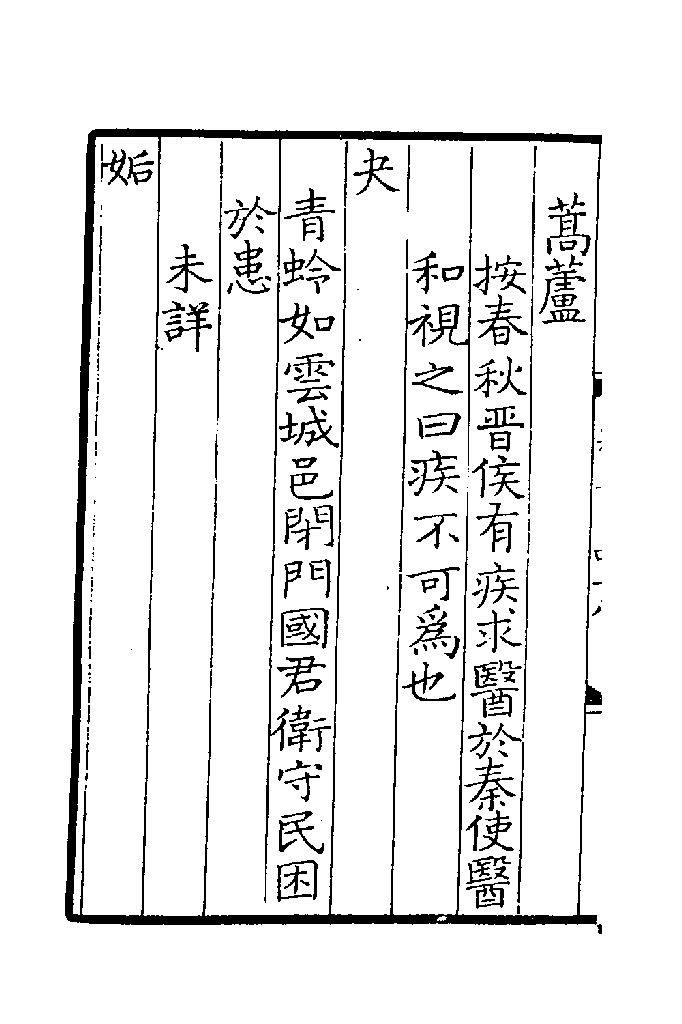 蒿蘆
按春秋晋侯有疾求醫於秦使醫
和視之曰疾不可爲也
夬
青蛉如雲城邑閉門國君衛守民困
於患
未詳
姤